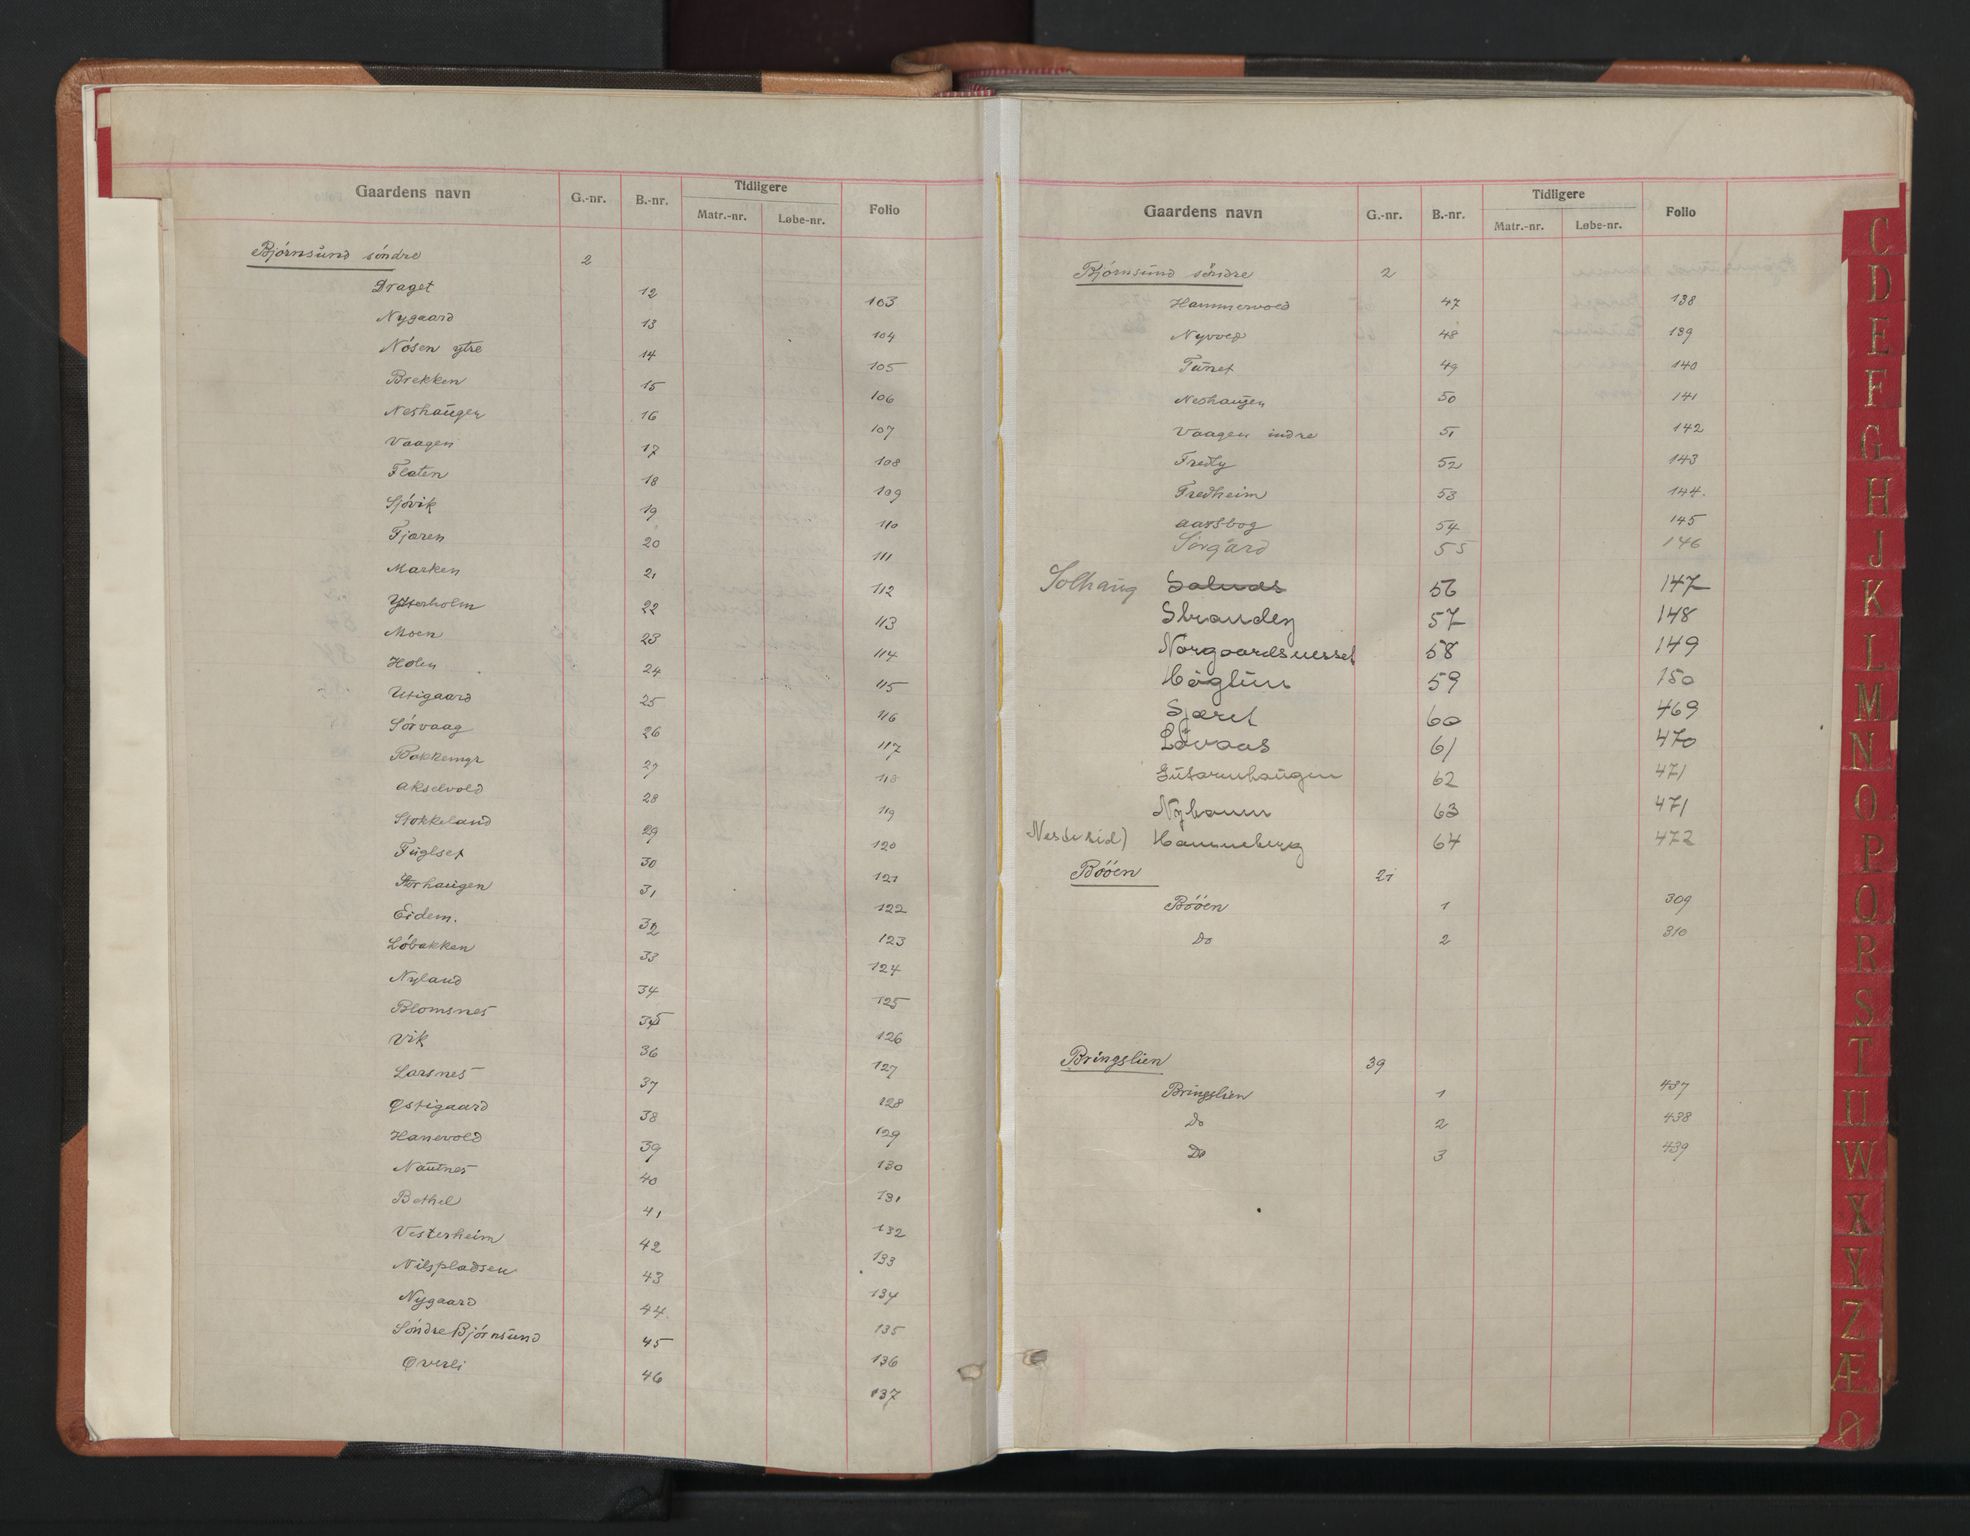 Gaardens navn G.-nr. B.-nr. Tidligere Folio
Matr.-nr. Løbe-nr.
Bjørnsund søndre 2
Draget 12 103
Nygaard 13 104
Nøsen ytre 14 105
Brekken 15 106
Neshaugen 16 107
Vaagen 17 108
Flaten 18 109
Sjøvik 19 110
Fjæren 20 111
Marken 21 112
Ytterholm 22 113
Moen 23 114
Holen 24 115
Utigaard 25 116
Sørvaag 26 117
Bakkemyr 27 118
Akselvold 28 119
Stokkeland 29 120
Fuglset 30 121
Storhaugen 31 122
Eidem. 32 123
Løbakken 33 124
Nyland 34 125
Blomsnes 35 126
Vik 36 127
Larsnes 37 128
Østigaard 38 129
Hanevold 39 130
Nautnes 40 131
Bethel 41 132
Vesterheim 42 133
Nilspladsen 43 134
Nygaard 44 135
Søndre Bjørnsund 45 136
Øverli 46 137
Gaardens navn G.-nr. B.-nr. Tidligere Folio
Matr.-nr. Løbe-nr.
Bjørnsund søndre 2
Hammervold 47 138
Nyvold 48 139
Tunet 49 140
Neshaugen 50 141
Vaagen indre 51 142
Fredly 52 143
Fredheim 53 144.
Aarsbog 54 145
Sørgård 55 146
Solhaug 56 147
Strandey 57 148
Norgaardsnesset 58 149
Høglun 59 150
Sjæret 60 469
Løvaas 61 470
Gutormhaugen 62 471
Nyhamn 63 471
Hammeberg 64 472
Bøöen 21
Bøöen 1 309
Do 2 310
Bringslien 39
Bringslien 1 437
Do 2 438
Do 3 439
C
D
E
F
G
H
J
K
L
M
N
O
P
Q
R
S
T
U
W
X
Y
Z
Æ
Ø